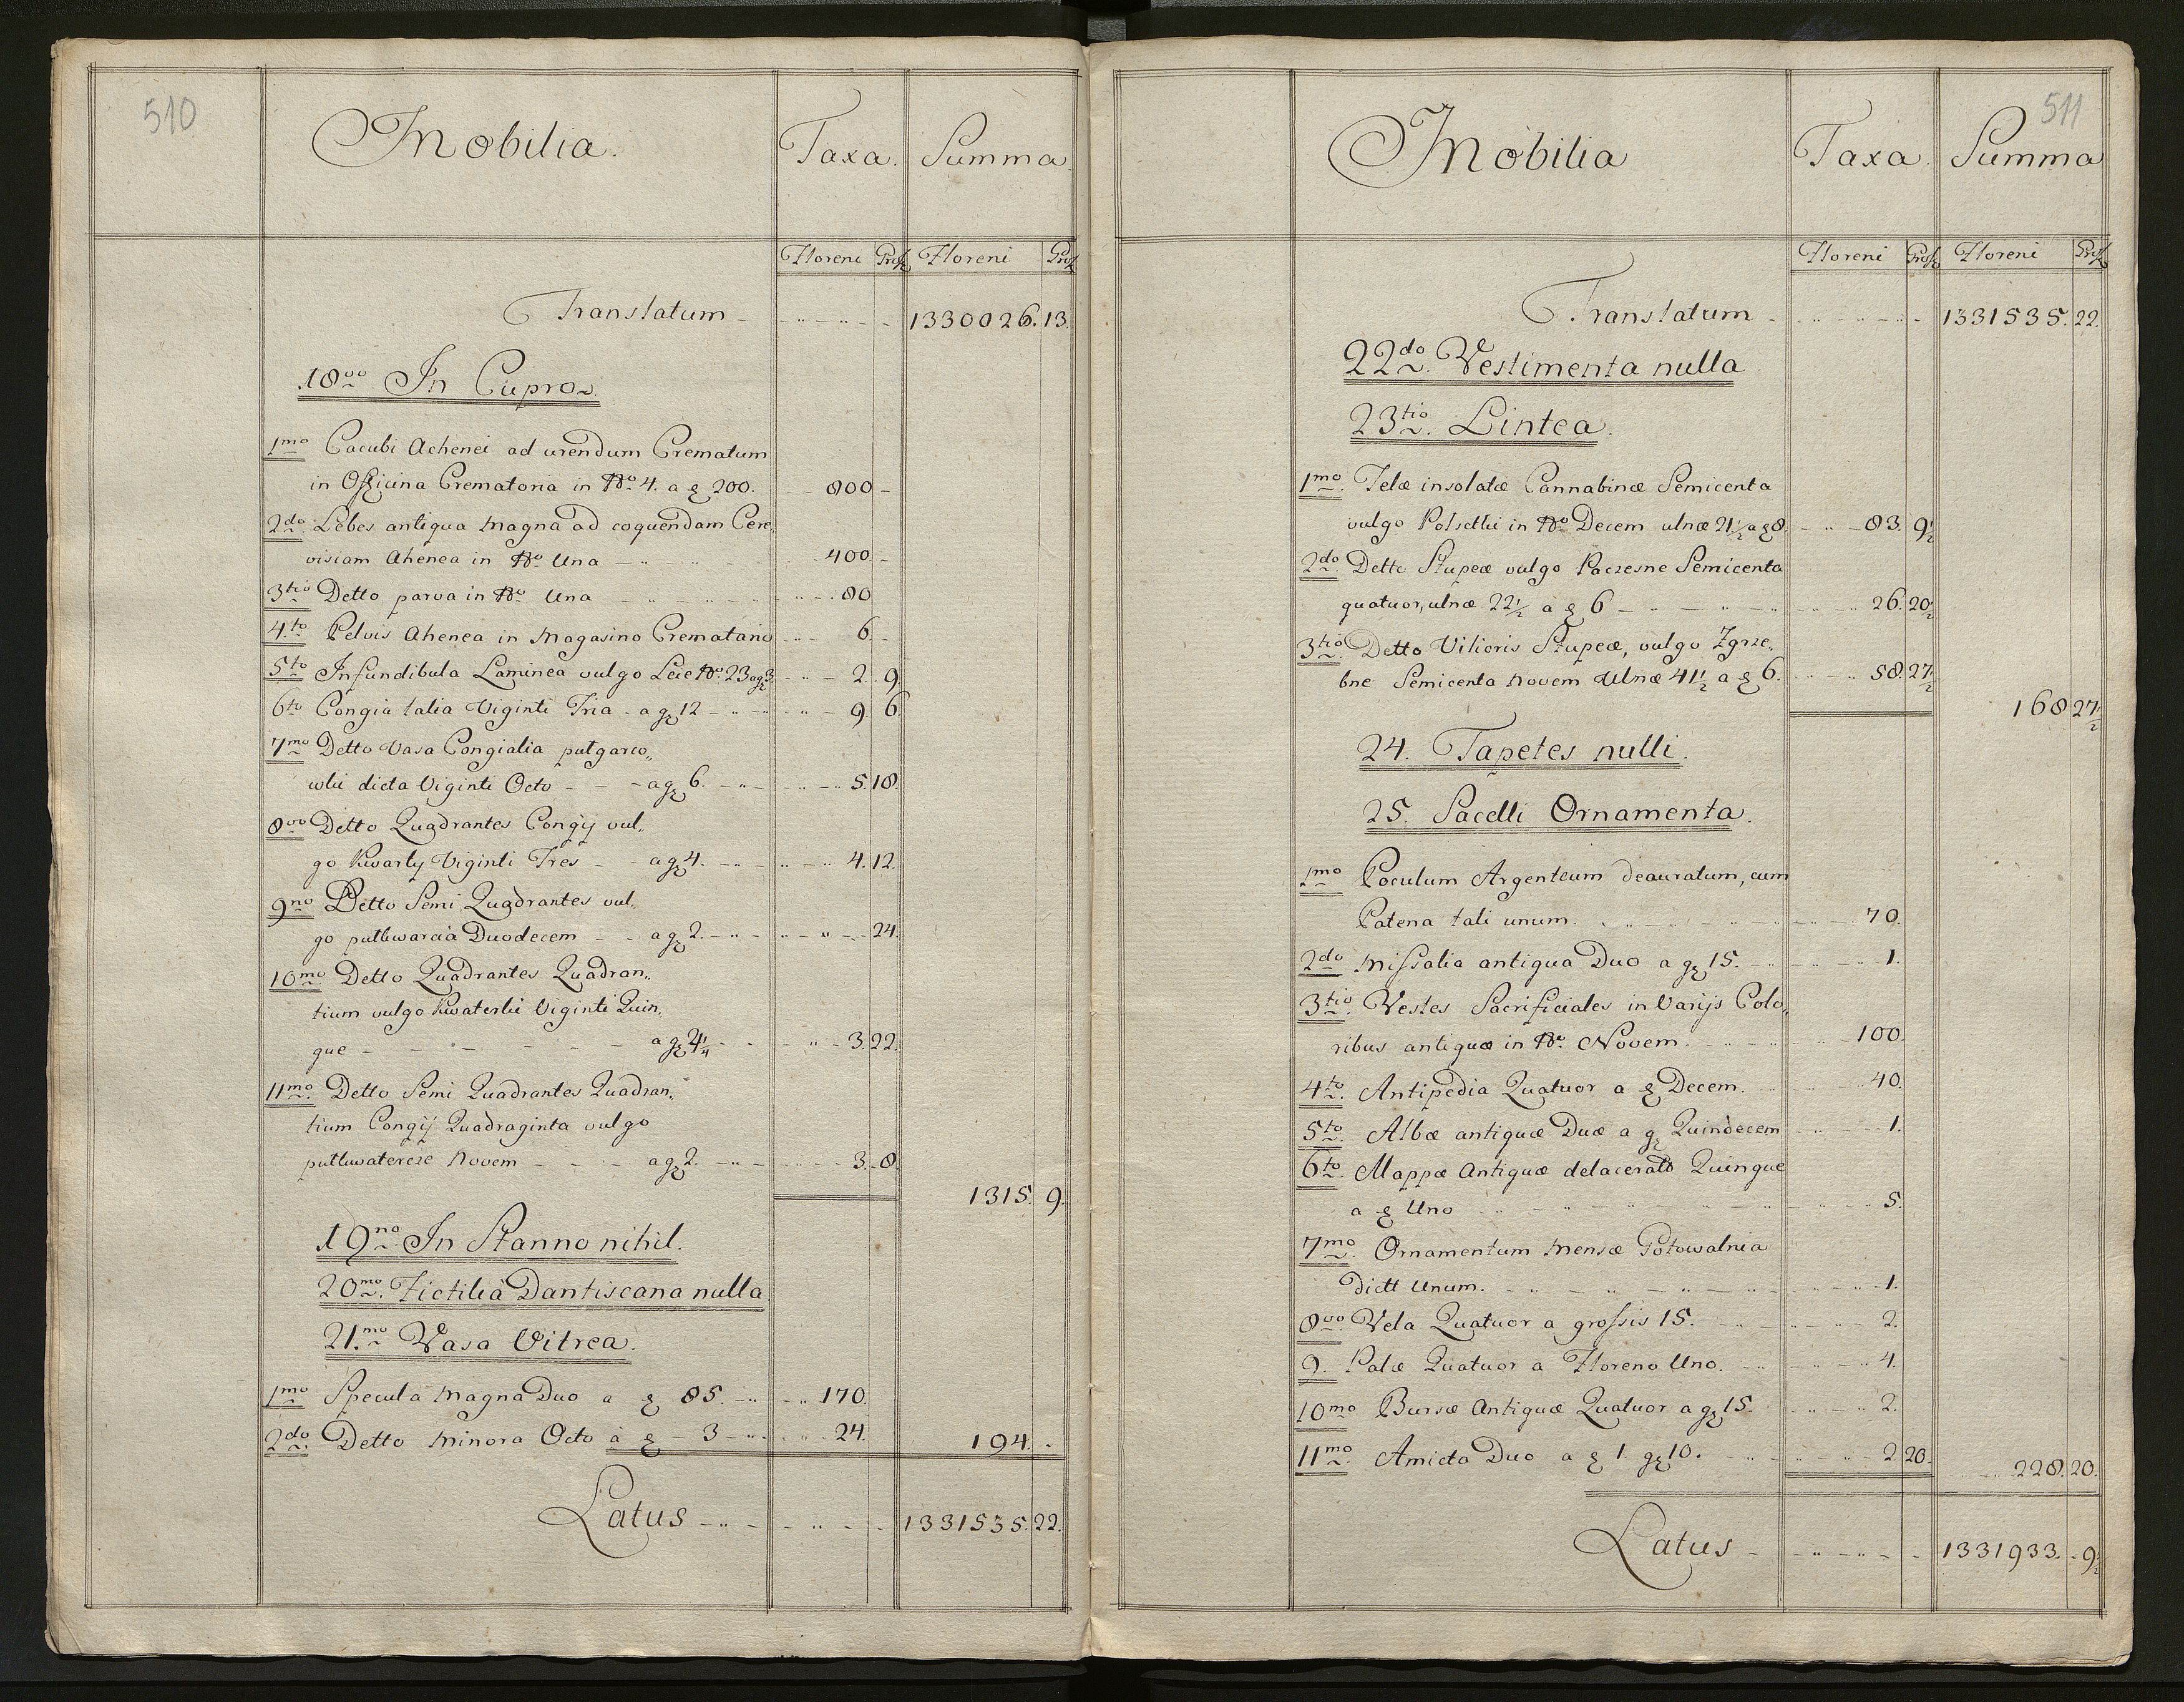 510
Mobilia. Taxa. Summa
Floreni Gross Floreni Gross
Translatum 1330026. 13.
18vo In Cupro.
1mo Cacubi Achenei ad urendum Crematum
in Officina Crematoria in No 4. a f 200. 800
2do Lebes antiqua magna ad coquendam Cere„
visiam Ahenea in No Una 400.
3tio Detto parva in No Una 80
4to Pelvis Ahenea in Magasino Crematario 6.
5to Infundibula Laminea vulgo Leie No 23 a g 3 2. 9.
6to Congia talia Viginti Tria a g 12 9. 6.
7mo Detto Vasa Congialia pułgarco„
wki dicta Viginti Octo a g 6. 5. 18.
8vo Detto Quadrantes Congÿ vul„
go Kwarty Viginti Tres a g 4. 4. 12.
9no Detto Semi Quadrantes vul„
go pułkwarcia Duodecem a g 2. 24.
10mo Detto Quadrantes Quadran„
tium vulgo Kwaterki Viginti Quin„
que a g 4¼ 3. 22.
11mo Detto Semi Quadrantes Quadran„
tium Congÿ Quadraginta vulgo
pułkwatercze Novem a g 2. 3. 8.
1315. 9.
19no In Stanno nihil.
20mo Fictilia Dantiscana nulla
21mo Vasa Vitrea.
1mo Specula Magna Duo a f 85. 170.
2do Detto Minora Octo à f 3 24. 194.
Latus 1331535. 22.
511
Mobilia Taxa. Summa
Floreni Gross Floreni Gross
Translatum 1331535. 22.
22do Vestimenta nulla
23tio Lintea.
1mo Telæ insolatæ Cannabinæ Semicenta
vulgo Polsetki in No Decem ulnæ 21½ a f 8. 83. 9½
2do Detto Stupeæ vulgo Paczesne Semicenta
quatuor, ulnæ 22½ a f 6 26. 20½
3tio Detto Vilioris Stupeæ, vulgo Zgrze„
bne Semicenta Novem Ulnæ 41½ a f 6. 58. 27½
168 27½
24. Tapetes nulli.
25. Sacelli Ornamenta.
1mo Poculum Argenteum deauratum, cum
Patena tali unum. 70.
2do Missalia antiqua Duo a g 15. 1.
3tio Vestes Sacrificiales in Varÿs Colo„
ribus antiquæ in No Novem. 100.
4to Antipedia Quatuor a f Decem. 40.
5to Albæ antiquæ Duæ a g Quindecem 1.
6to Mappæ Antiquæ delacerato Quinque
a f Uno 5.
7mo Ornamentum Mensæ Gotowalnia
Dictt Unum. 1.
8vo Vela Quatuor a grossis 15. 2.
9. Palæ Quatuor a Floreno Uno. 4.
10mo Bursæ Antiquæ Quatuor a g 15. 2.
11mo Amicta Duo a f 1 g 10. 2. 20.
228. 20.
Latus 1331933. 9½